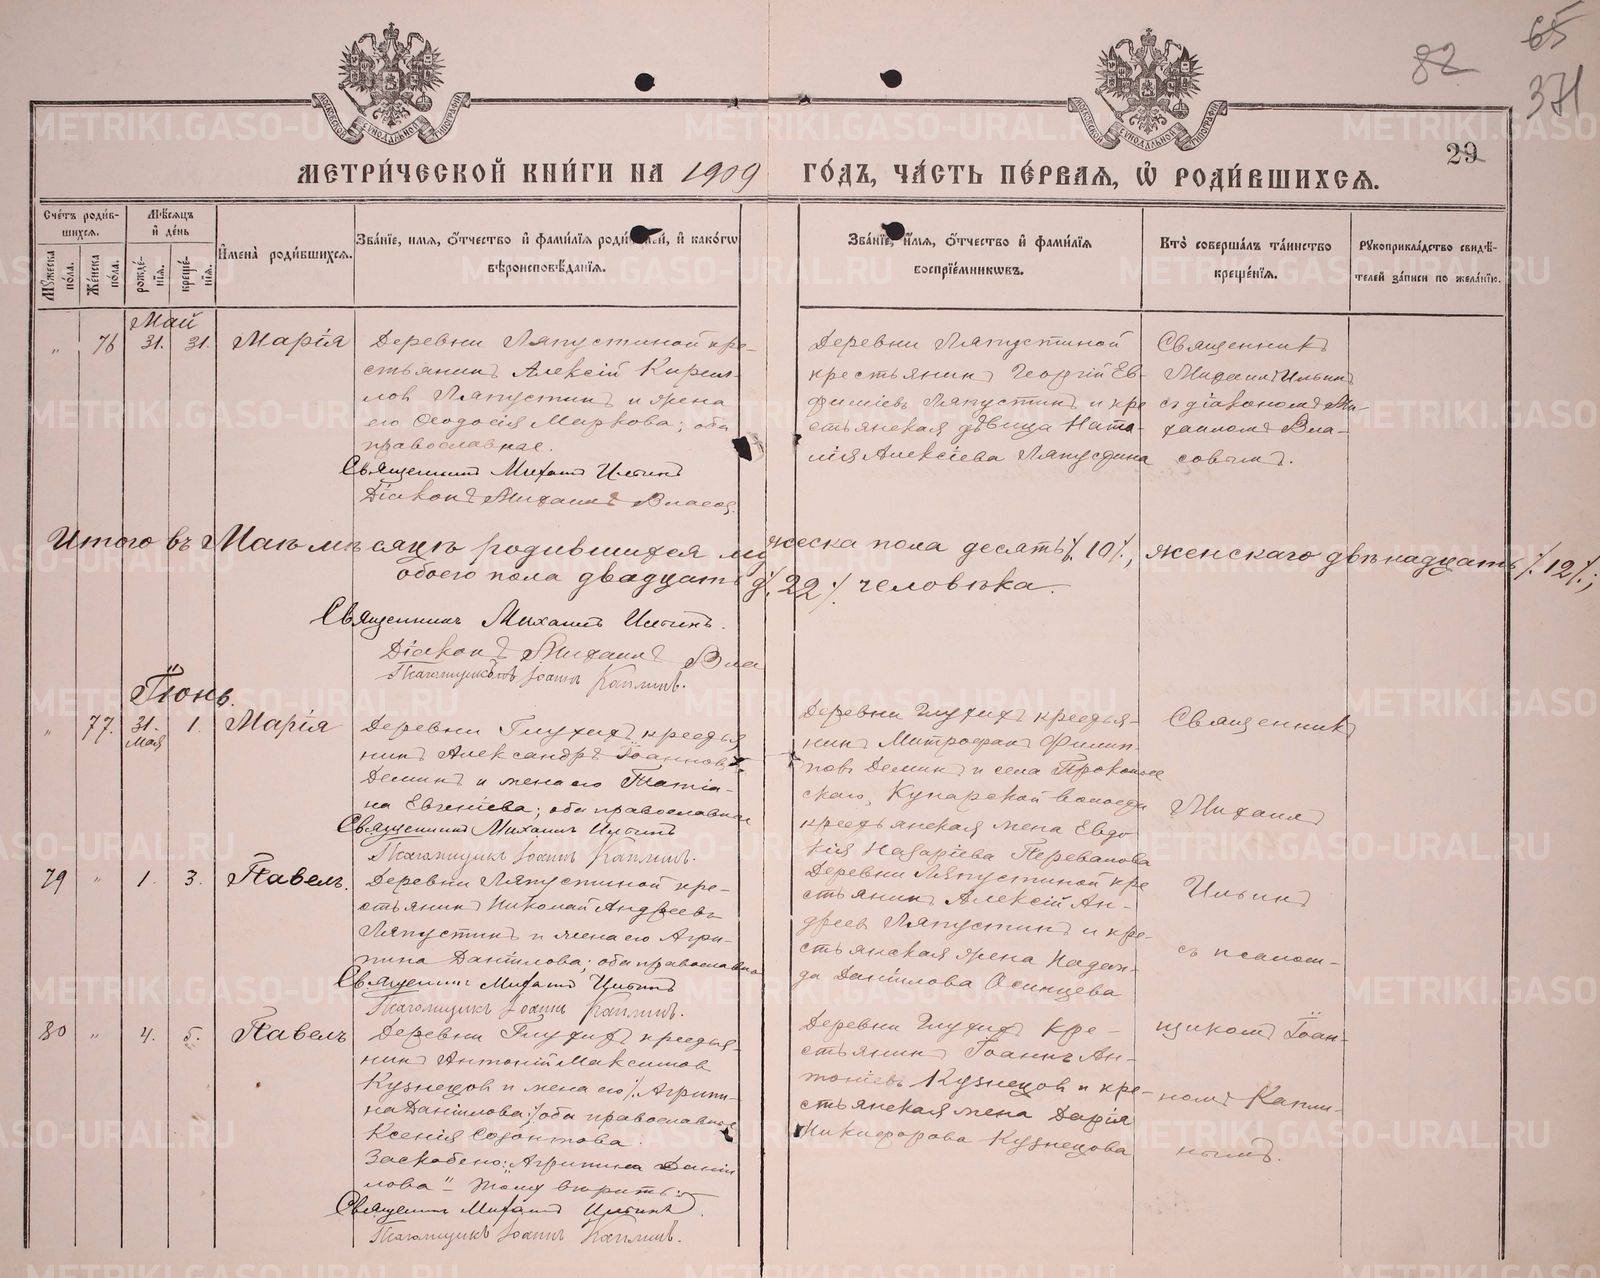 82
65
371
29
МОСКОВСКОЙ СѴНОДАЛЬНОЙ ТИПОГРАФІИ
МОСКОВСКОЙ СѴНОДАЛЬНОЙ ТИПОГРАФІИ
МЕТРИ́ЧЕСКОЙ КНИ́ГИ НА 1909 ГО́ДЪ, ЧА́СТЬ ПЕ́РВАЯ, Ѡ РОДИ́ВШИХСЯ.
Сче́тъ роди́вшихся.
Мꙋ́жеска по́ла.
Же́нска по́ла.
Мѣ́сяцъ и҆ де́нь
рожде́нїя.
креще́нїя.
И҆мена̀ роди́вшихся.
Зва́нїе, и҆́мя, ѻ҆́тчество и҆ фами́лїя роди́телей, и҆ како́гѡ вѣроисповѣ́данїя.
Зва́нїе, и҆́мя, ѻ҆́тчество и҆ фами́лїя воспрїе́мникѡвъ.
Кто̀ соверша́лъ та́инство креще́нїя.
Рꙋкоприкла́дство свидѣ́телей за́писи по жела́нїю.
Май
„ 76 31. 31. Марія
Деревни Ляпустиной кре-
стьянинъ Алексій Кирил-
ловъ Ляпустинъ и жена
его Ѳеодосія Маркова; оба
православные.
Священникъ Михаилъ Ильинъ
Діаконъ Михаилъ Власов
Деревни Ляпустиной
крестьянинъ Георгій Ев-
фиміевъ Ляпустинъ и кре
стьянская дѣвица Ната-
лія Алексіева Ляпустина
Священникъ
Михаилъ Ильинъ
съ діакономъ Ми-
хаиломъ Вла-
совымъ.
Итого въ Маѣ мѣсяцѣ родившихся мужеска пола десять ./. 10 ./., женскаго двѣнадцать ./. 12 ./.;
обоего пола двадцать два ./. 22 ./. человѣка.
Священникъ Михаилъ Ильинъ.
Діаконъ Михаилъ Вла
Псаломщикъ Іоаннъ Каплинъ.
Іюнь.
„ 77. 31. Мая 1. Марія
Деревни Глухихъ крестья
нинъ Александръ Іоанновъ
Деминъ и жена его Татіа-
на Евгеніева; оба православные
Священникъ Михаилъ Ильинъ
Псаломщикъ Іоаннъ Каплинъ.
Деревни Глухихъ крестья-
нинъ Митрофанъ Филип-
повъ Деминъ и села Прокопьев
скаго, Кунарской волости
крестьянская жена Евдо
кія Назаріева Перевалова
Священникъ
Михаилъ
Ильинъ
съ псалом-
щикомъ Іоан-
номъ Капли-
нымъ.
79 „ 1. 3. Павелъ.
Деревни Ляпустиной кре-
стьянинъ Николай Андреевъ
Ляпустинъ и жена его Агри-
пина Даніилова; оба православные
Священникъ Михаилъ Ильинъ
Псаломщикъ Іоаннъ Каплинъ.
Деревни Ляпустиной кре
стьянинъ Алексій Ан-
дреевъ Ляпустинъ и кре-
стьянская жена Надеж-
да Даніилова Осинцева
80 „ 4. 5. Павелъ
Деревни Глухихъ крестья-
нинъ Антоній Максимов
Кузнецов и жена его ./. Агрипи-
на Даніилова; ./. оба православные
Ксенія Созонтова
Заскоблено: „Агрипина Дании
лова“ – тому вѣрить:
Священникъ Михаилъ Ильинъ.
Псаломщикъ Іоаннъ Каплинъ.
Деревни Глухихъ кре-
стьянинъ Іоаннъ Ан-
тоніевъ Кузнецов и кре-
стьянская жена Дарія
Никифорова Кузнецова
METRIKI.GASO-URAL.RU